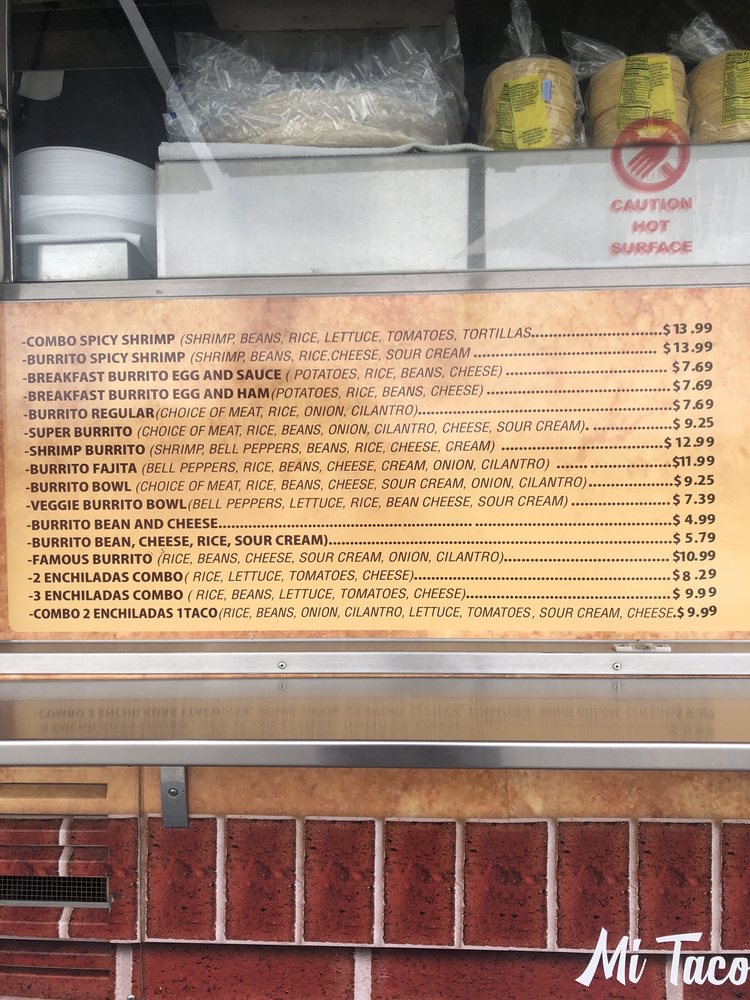 CAUTION
HOT
SURFACE
-COMBO SPICY SHRIMP (SHRIMP, BEANS, RICE, LETTUCE, TOMATOES, TORTILLAS...............................$13.99
-BURRITO SPICY SHRIMP (SHRIMP, BEANS, RICE,CHEESE, SOUR CREAM ............................................ $13.99
-BREAKFAST BURRITO EGG AND SAUCE ( POTATOES, RICE, BEANS, CHEESE) ........................................$7.69
-BREAKFAST BURRITO EGG AND HAM(POTATOES, RICE, BEANS, CHEESE) ............................................$7.69
-BURRITO REGULAR(CHOICE OF MEAT, RICE, ONION, CILANTRO)............................................................$7.69
-SUPER BURRITO (CHOICE OF MEAT, RICE, BEANS, ONION, CILANTRO, CHEESE, SOUR CREAM). ...................$ 9.25
-SHRIMP BURRITO (SHRIMP, BELL PEPPERS, BEANS, RICE, CHEESE, CREAM) ........................................$ 12.99
-BURRITO FAJITA (BELL PEPPERS, RICE, BEANS, CHEESE, CREAM, ONION, CILANTRO) ....... .....................$11.99
-BURRITO BOWL (CHOICE OF MEAT, RICE, BEANS, CHEESE, SOUR CREAM, ONION, CILANTRO)....................$9.25
-VEGGIE BURRITO BOWL(BELL PEPPERS, LETTUCE, RICE, BEAN CHEESE, SOUR CREAM) ........................$ 7.39
-BURRITO BEAN AND CHEESE............................................................. ................................................$ 4.99
-BURRITO BEAN, CHEESE, RICE, SOUR CREAM)....................................................................................$ 5.79
-FAMOUS BURRITO (RICE, BEANS, CHEESE, SOUR CREAM, ONION, CILANTRO)........................................$10.99
-2 ENCHILADAS COMBO( RICE, LETTUCE, TOMATOES, CHEESE)..............................................................$8.29
-3 ENCHILADAS COMBO ( RICE, BEANS, LETTUCE, TOMATOES, CHEESE)..................................................$ 9.99
-COMBO 2 ENCHILADAS 1TACO(RICE, BEANS, ONION, CILANTRO, LETTUCE, TOMATOES, SOUR CREAM, CHEESE.$ 9.99
Mi Taco